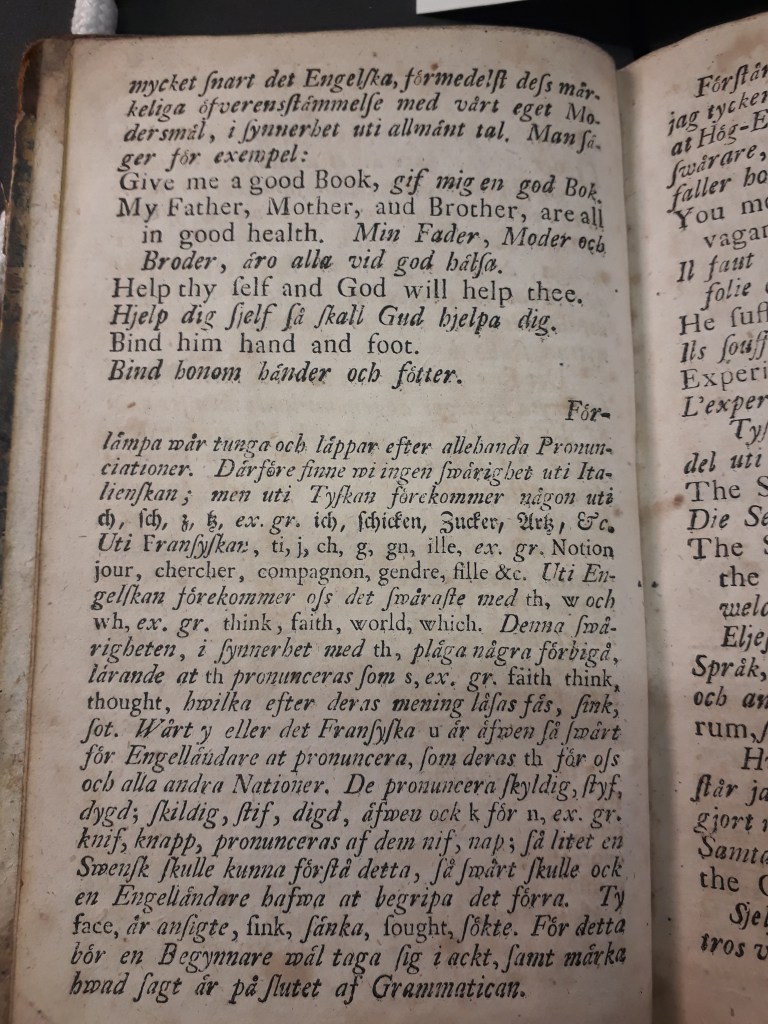 mycket ſnart det Engelſka, förmedelſt deſs mär-
keliga öfverensſtämmelſe med vårt eget Mo-
dersmål, i ſynnerhet uti allmänt tal. Man ſä-
ger för exempel:
Give me a good Book, gif mig en god Bok.
My Father, Mother, aud Brother, are all
in good health. Min Fader, Moder och
Broder, äro alla vid god hälſa.
Help thy ſelf and God will help thee.
Hjelp dig ſjelf ſå ſkall Gud hjelpa dig.
Bind him hand and foot.
Bind honom händer och fötter.
För-
lämpa wår tunga och läppar efter allehanda Pronun-
ciationer. Därföre finne wi ingen ſwårighet uti Ita-
lienſkan; men uti Tyſkan förekommer någon uti
ch, ſch, z, tz, ex. gr. ich, ſchicken, Zucker, Artz, &c.
Uti Franſyſkan, ti, j, ch, g, gn, ille, ex. gr. Notion
jour, chercher, compagnon, gendre, fille &c. Uti En-
gelſkan förekommer oſs det ſwåraſte med th, w och
wh, ex. gr. think, faith, world, which. Denna ſwå-
righeten, i ſynnerhet med th, pläga några förbigå,
lärande at th pronunceras ſom s, ex. gr. faith think,
thought, hwilka efter deras mening läſas fäs, ſink,
ſot. Wårt y eller det Franſyſka u är äfwen ſå ſwårt
för Engelländare at pronuncera, ſom deras th för oſs
och alla andra Nationer. De pronuncera ſkyldig, ſtyf,
dygd; ſkildig, ſtif, digd, äfwen ock k för n, ex. gr.
knif, knapp, pronunceras af dem nif, nap; ſå litet en
Swenſk ſkulle kunna förſtå detta, ſå ſwårt ſkulle ock
en Engelländare hafwa at begripa det förra. Ty
face, är anſigte, ſink, ſänka, ſought, ſökte. För detta
bör en Begynnare wäl taga ſig i ackt, ſamt märka
hwad ſagt är på ſlutet af Grammatican.
Förſtår
jag tycker
at Hög-E
ſwårare,
faller
You
vagan
Il faut
folie
He ſuff
Ils ſouff
Experi
L'exper
Tyſ
del uti
The S
Die Se
The S
the
welc
Eljeſ
Språk,
och an
rum, ſ
ſtår ja
gjort
Samta
the
Sjel
tros v